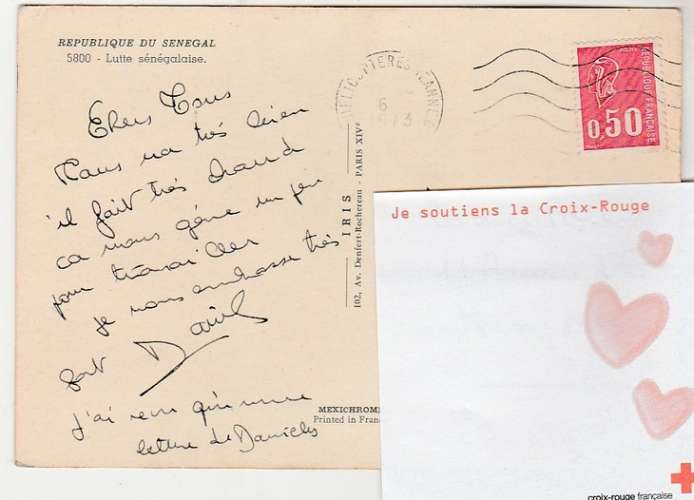 REPUBLIQUE DU SENEGAL
5800 - Lutte sénégalaise.
Chers Tous
Tous va très bien
il fait très chaud
ca nous gène un peu
pour travailler
je vous embrasse très
fort Daniel
j'ai reçu qu'une
lettre de Danielle
IRIS
102, Av. Denfert-Rochereau - PARIS XIVe
MEXICHROME
Printed in Fran
HELICOPTERES JEANNE
6
REPUBLIQUE FRANÇAISE
0,50
Je soutiens la Croix-Rouge
croix-rouge française